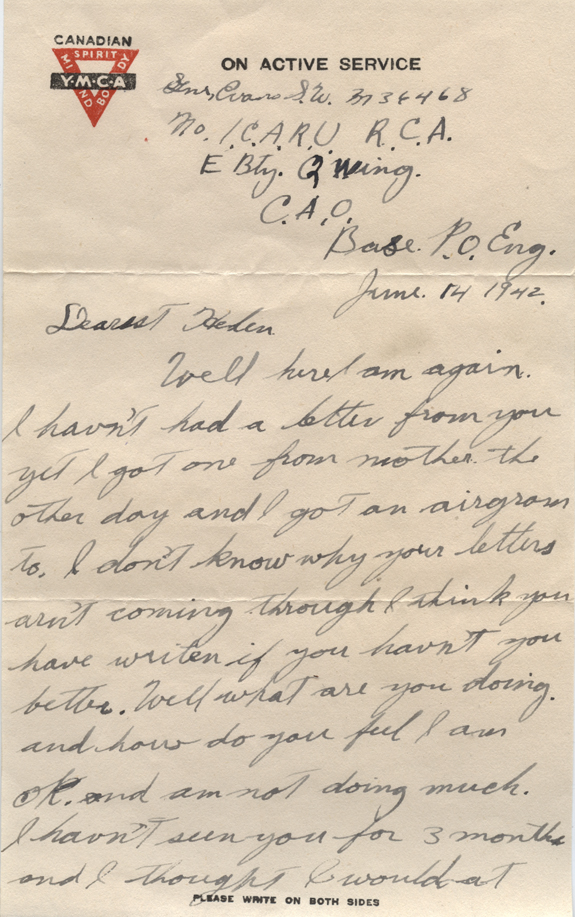 CANADIAN
SPIRIT
MIND BODY
Y·M·C·A
ON ACTIVE SERVICE
Gnr. Evans S.W. M36468
No. 1. C.A.R.U R.C.A.
E Bty. 2 Wing.
C.A.O.
Base P.O. Eng.
June. 14 1942.
Dearest Helen
Well here I am again.
I havn't had a letter from you
yet I got one from mother the
other day and I got an airgram
to. I don't know why your letters
arn't coming through I think you
have writen if you havn't you
better. Well what are you doing.
and how do you feel I am
OK. and am not doing much.
I havn't seen you for 3 months
and I thought I would at
PLEASE WRITE ON BOTH SIDES